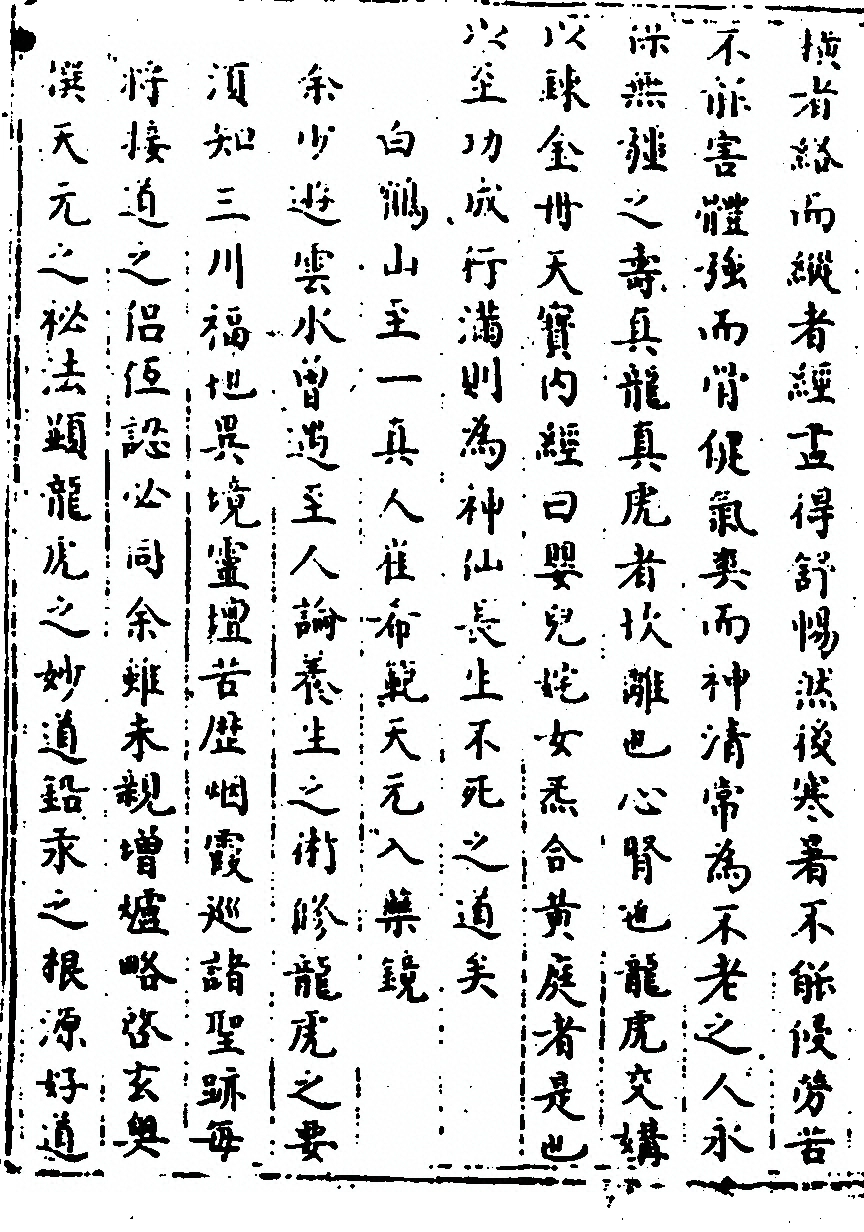 橫者絡而縱者經盂得舒惕然後寒暑不能侵勞苦
不能害體強而骨健氣爽而神清常為不老之人永
保無疆之壽真龍真虎者坎離也心腎也龍虎交媾
以鍊金丹天寶內經曰嬰兒姹女炁合黃庭者是也
以至功成行滿則為神仙長生不死之道矣
白鶴山至一真人崔希範天元入藥鏡
余少遊雲水曾遇至人論養生之術贂龍虎之要
須知三川福地吳境靈壇苦歷烟霞巡諧聖跡每
將接道之侶恆認必同余雖未親增爐略啓玄奧
撰天元之祕法顯龍虎之妙道鉛汞之根源好道